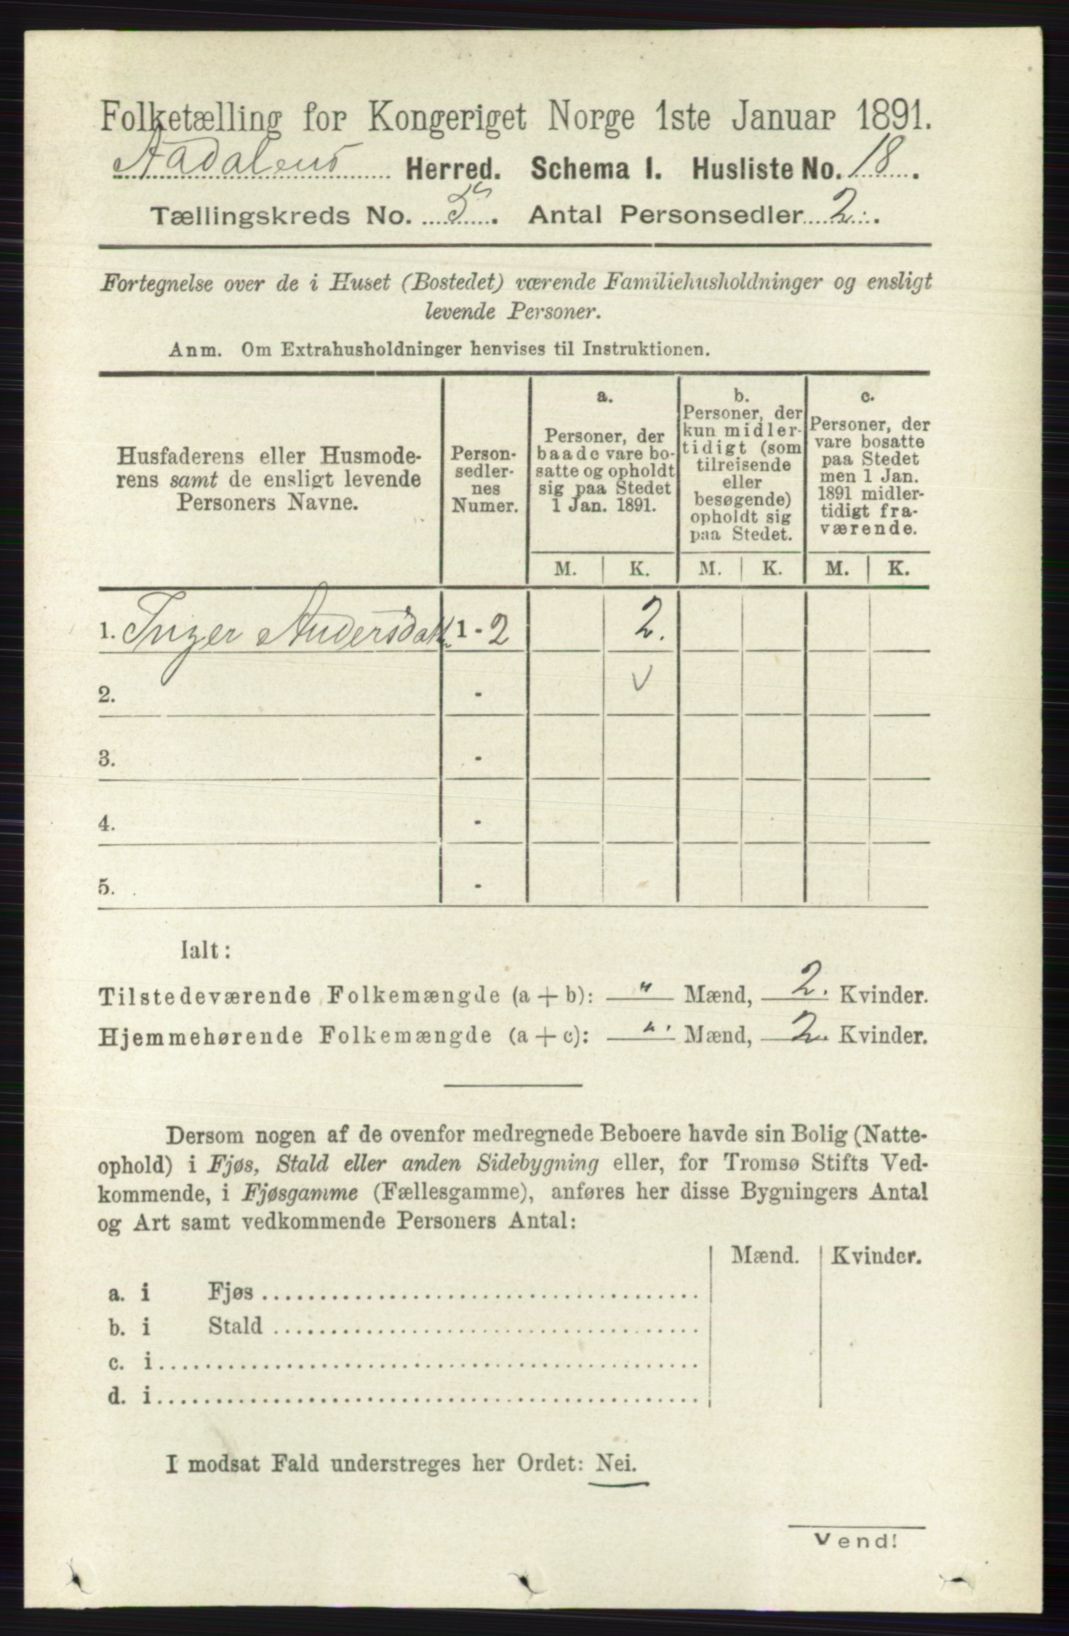 Folketælling for Kongeriget Norge 1ste Januar 1891.
Aadalens Herred. Schema I. Husliste No. 18.
Tællingskreds No. 5. Antal Personsedler 2.
Fortegnelse over de i Huset (Bostedet) værende Familiehusholdninger og ensligt
levende Personer.
Anm. Om Extrahusholdninger henvises til Instruktionen.
Husfaderens eller Husmode-
rens samt de ensligt levende
Personers Navne.
Person-
sedler-
nes
Numer.
a.
Personer, der
baade vare bo-
satte og opholdt
sig paa Stedet
1 Jan. 1891.
b.
Personer, der
kun midler-
tidigt (som
tilreisende
eller
besøgende)
opholdt sig
paa Stedet.
c.
Personer, der
vare bosatte
paa Stedet
men 1 Jan.
1891 midler-
tidigt fra-
værende.
M. K. M. K. M. K.
1. Inger Andersdatt 1 - 2 2.
2. - v
3. -
4. -
5. -
Ialt:
Tilstedeværende Folkemængde (a + b): " Mænd, 2. Kvinder.
Hjemmehørende Folkemængde (a + c): " Mænd, 2 Kvinder.
Dersom nogen af de ovenfor medregnede Beboere havde sin Bolig (Natte-
ophold) i Fjøs, Stald eller anden Sidebygning eller, for Tromsø Stifts Ved-
kommende, i Fjøsgamme (Fællesgamme), anføres her disse Bygningers Antal
og Art samt vedkommende Personers Antal:
Mænd. Kvinder.
a. i Fjøs
b. i Stald
c. i
d. i
I modsat Fald understreges her Ordet: Nei.
Vend!